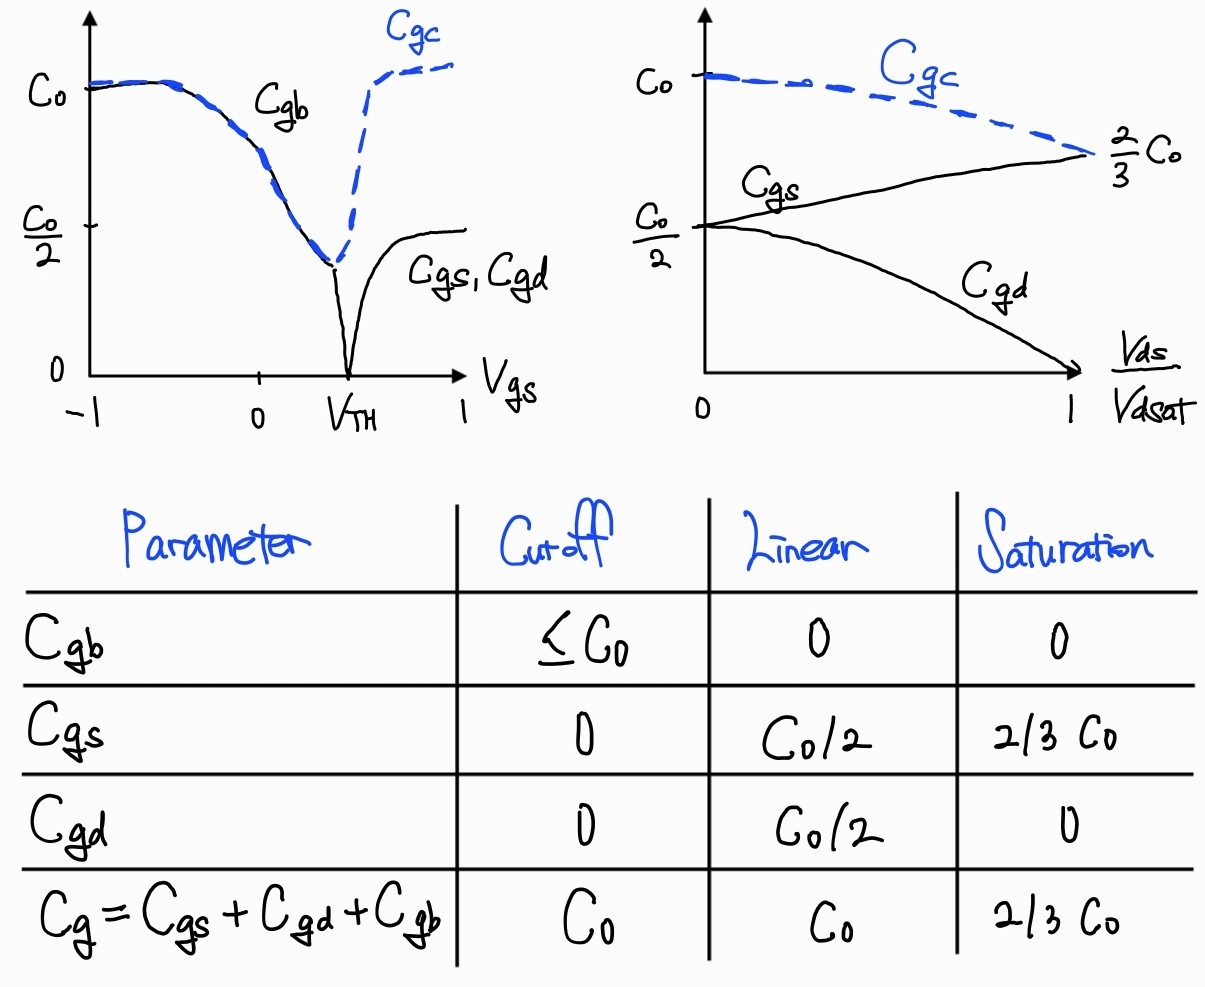 Cgc
C₀
Cgb
C₀/2
Cgs, Cgd
0
Vgs
-1
0
VTH
1
Cgc
C₀
2/3 C₀
Cgs
C₀/2
Cgd
Vds/Vdsat
0
1
Parameter Cutoff Linear Saturation
Cgb ≤ C₀ 0 0
Cgs 0 C₀/2 2/3 C₀
Cgd 0 C₀/2 0
Cg = Cgs + Cgd + Cgb C₀ C₀ 2/3 C₀